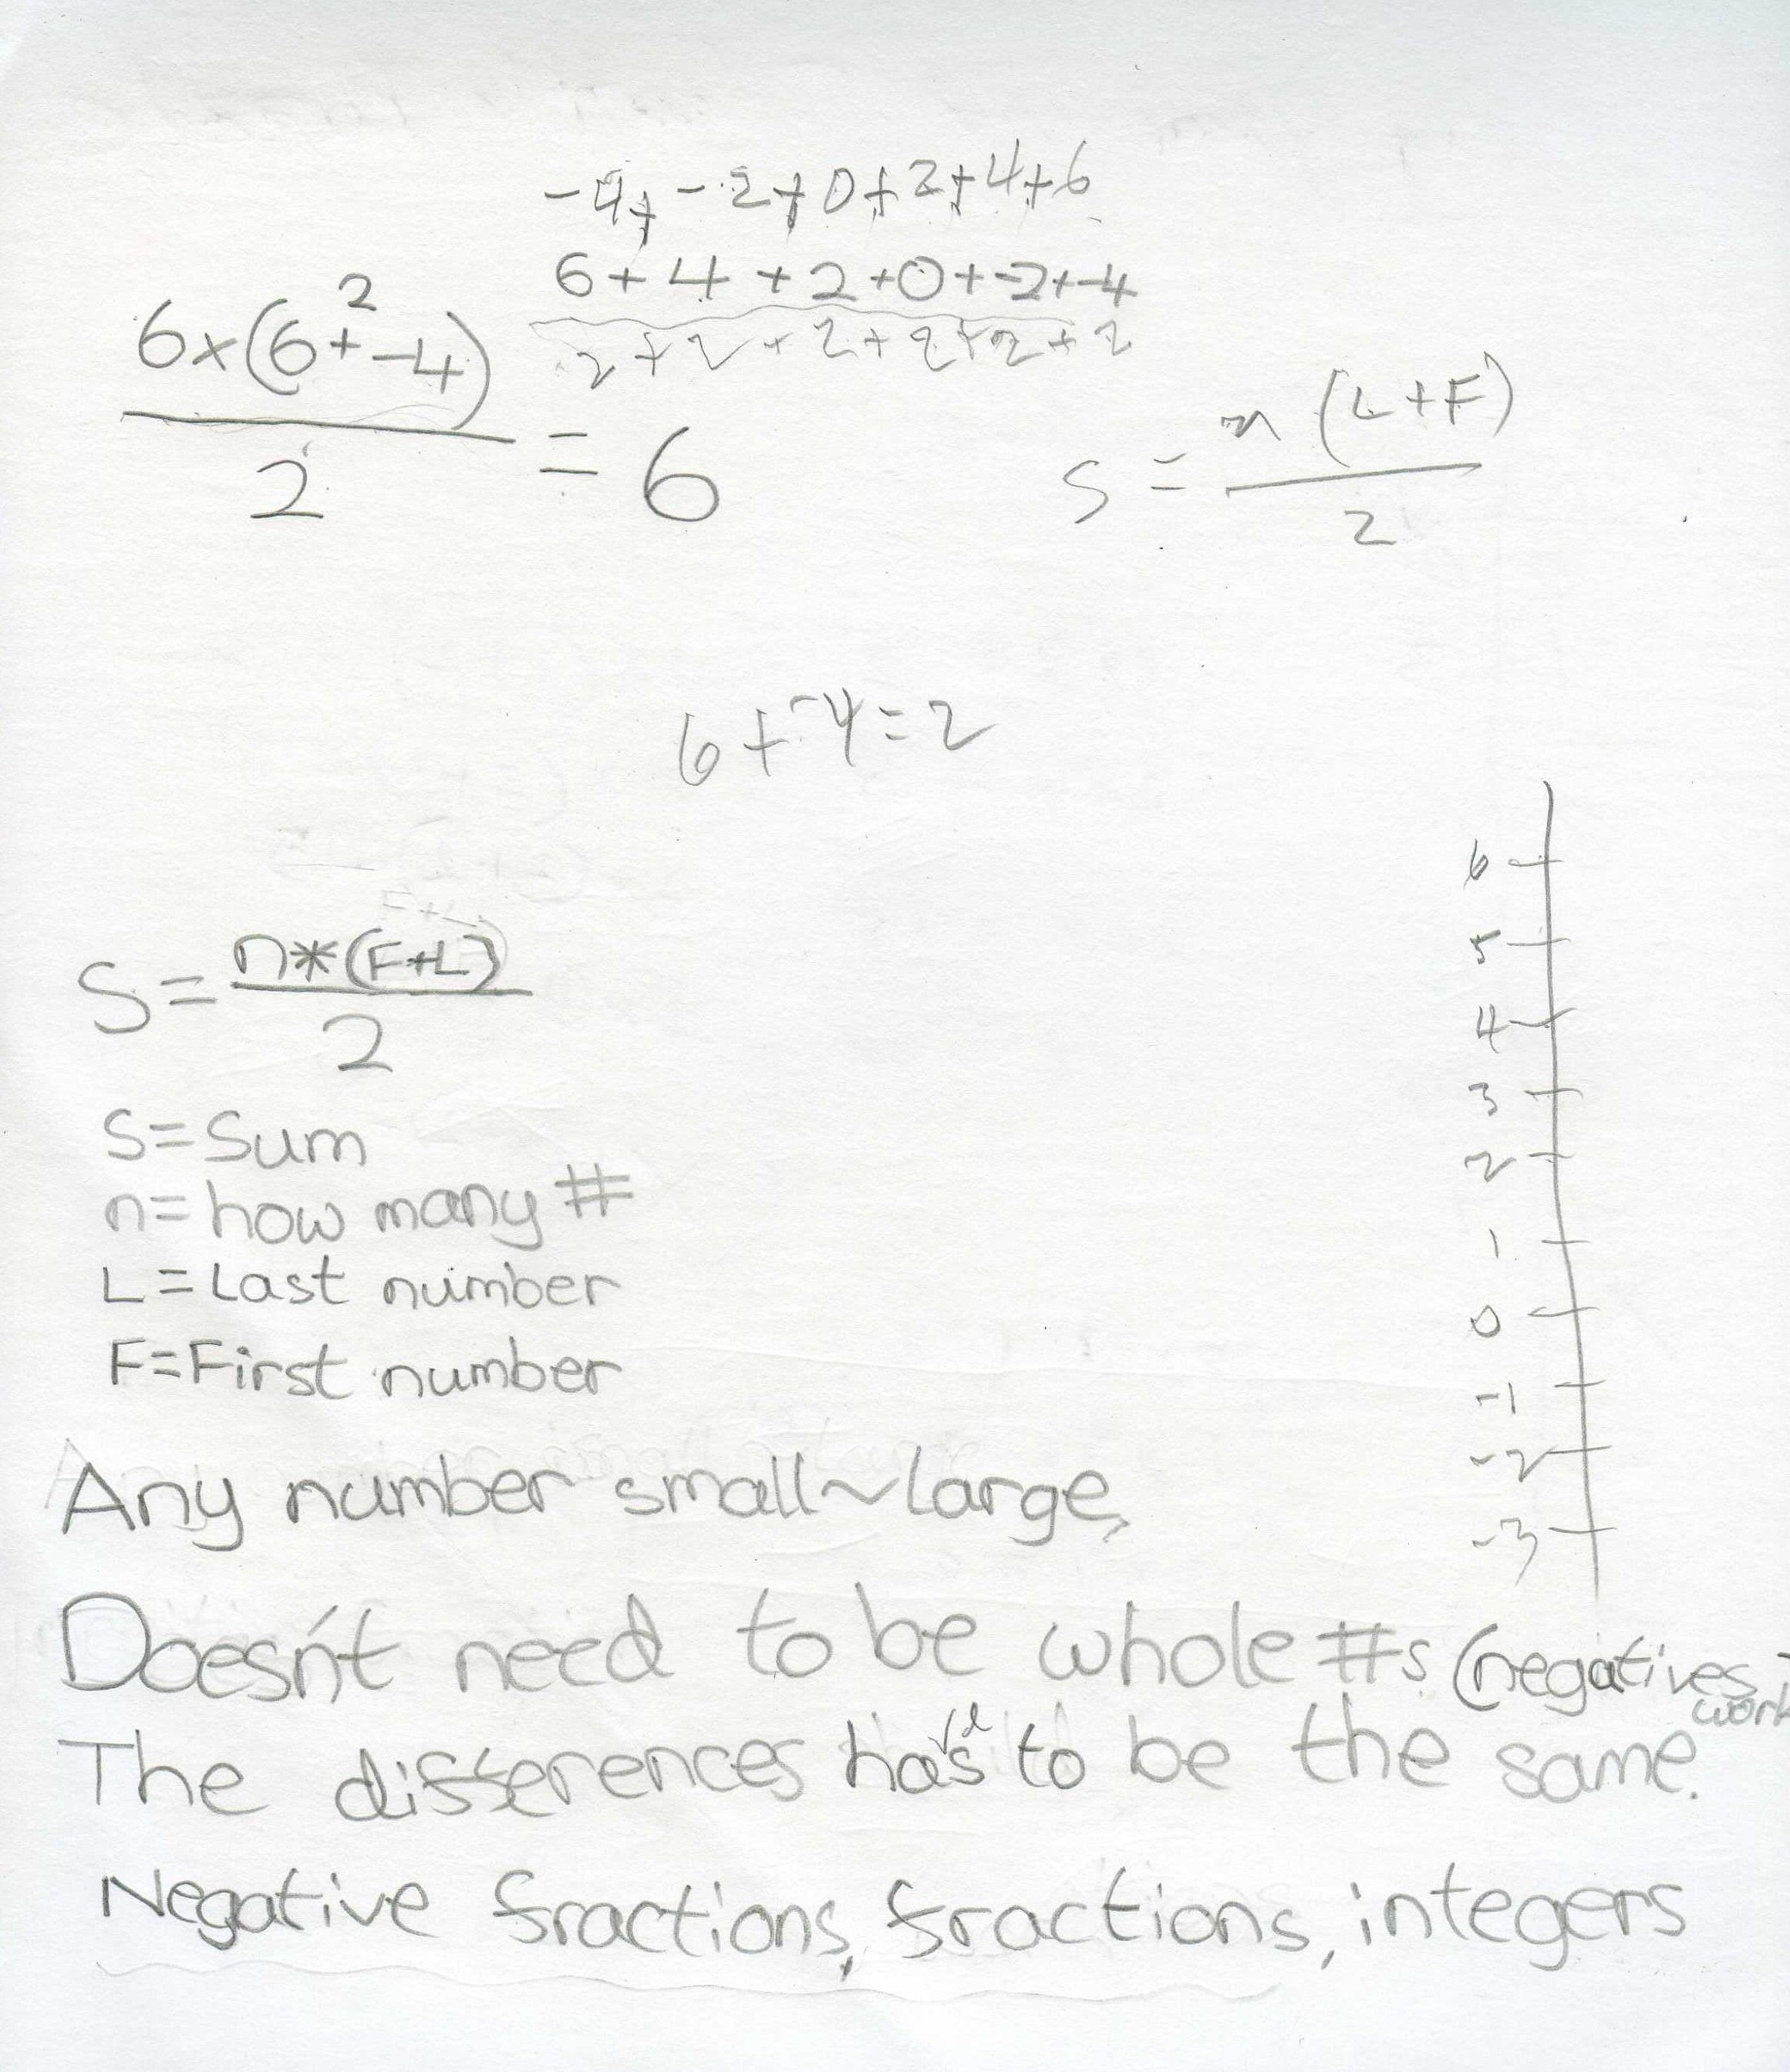 -4+ -2+0+2+4+6
6+4+2+0+-2+-4
2+2+2+2+2+2
2
6x(6+-4)
2
= 6
S = n (L+F)
2
6+-4=2
S= n*(F+L)
2
S=Sum
n=how many #
L=Last number
F=First number
6
5
4
3
2
1
0
-1
-2
-3
Any number small~large,
Doesn't need to be whole #s (negatives work
The differences has to be the same.
Negative fractions, fractions, integers